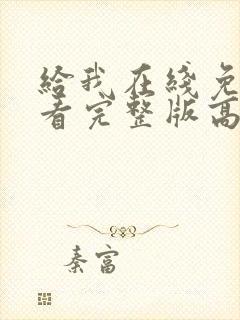 给我在线免
看完整版高
秦富